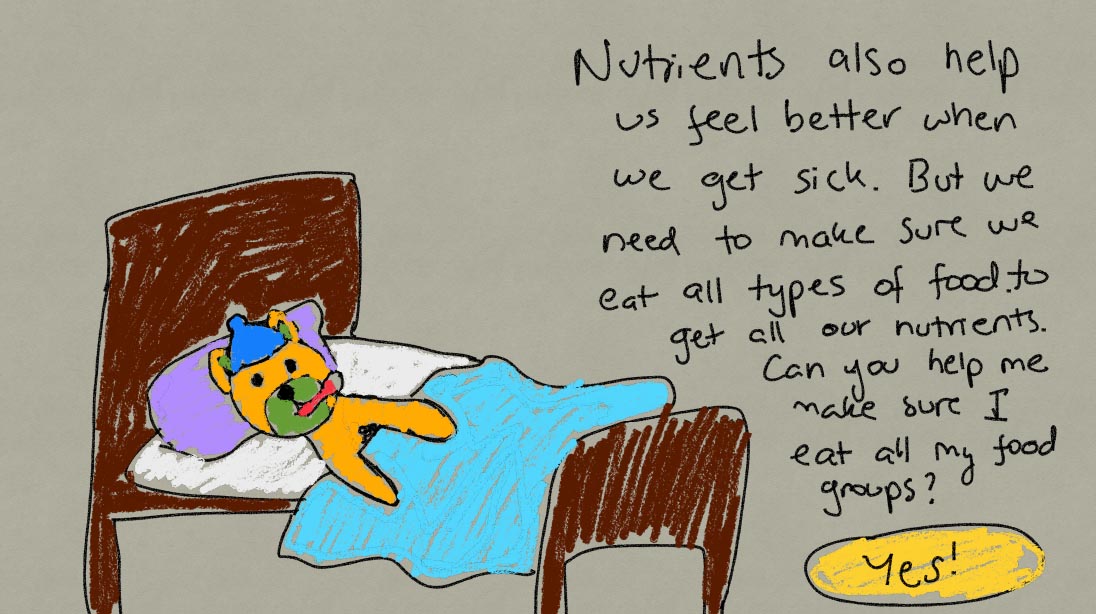 Nutrients also help
us feel better when
we get sick. But we
need to make sure we
eat all types of food.to
get all our nutrients.
Can you help me
make sure I
eat all my food
groups?
Yes!